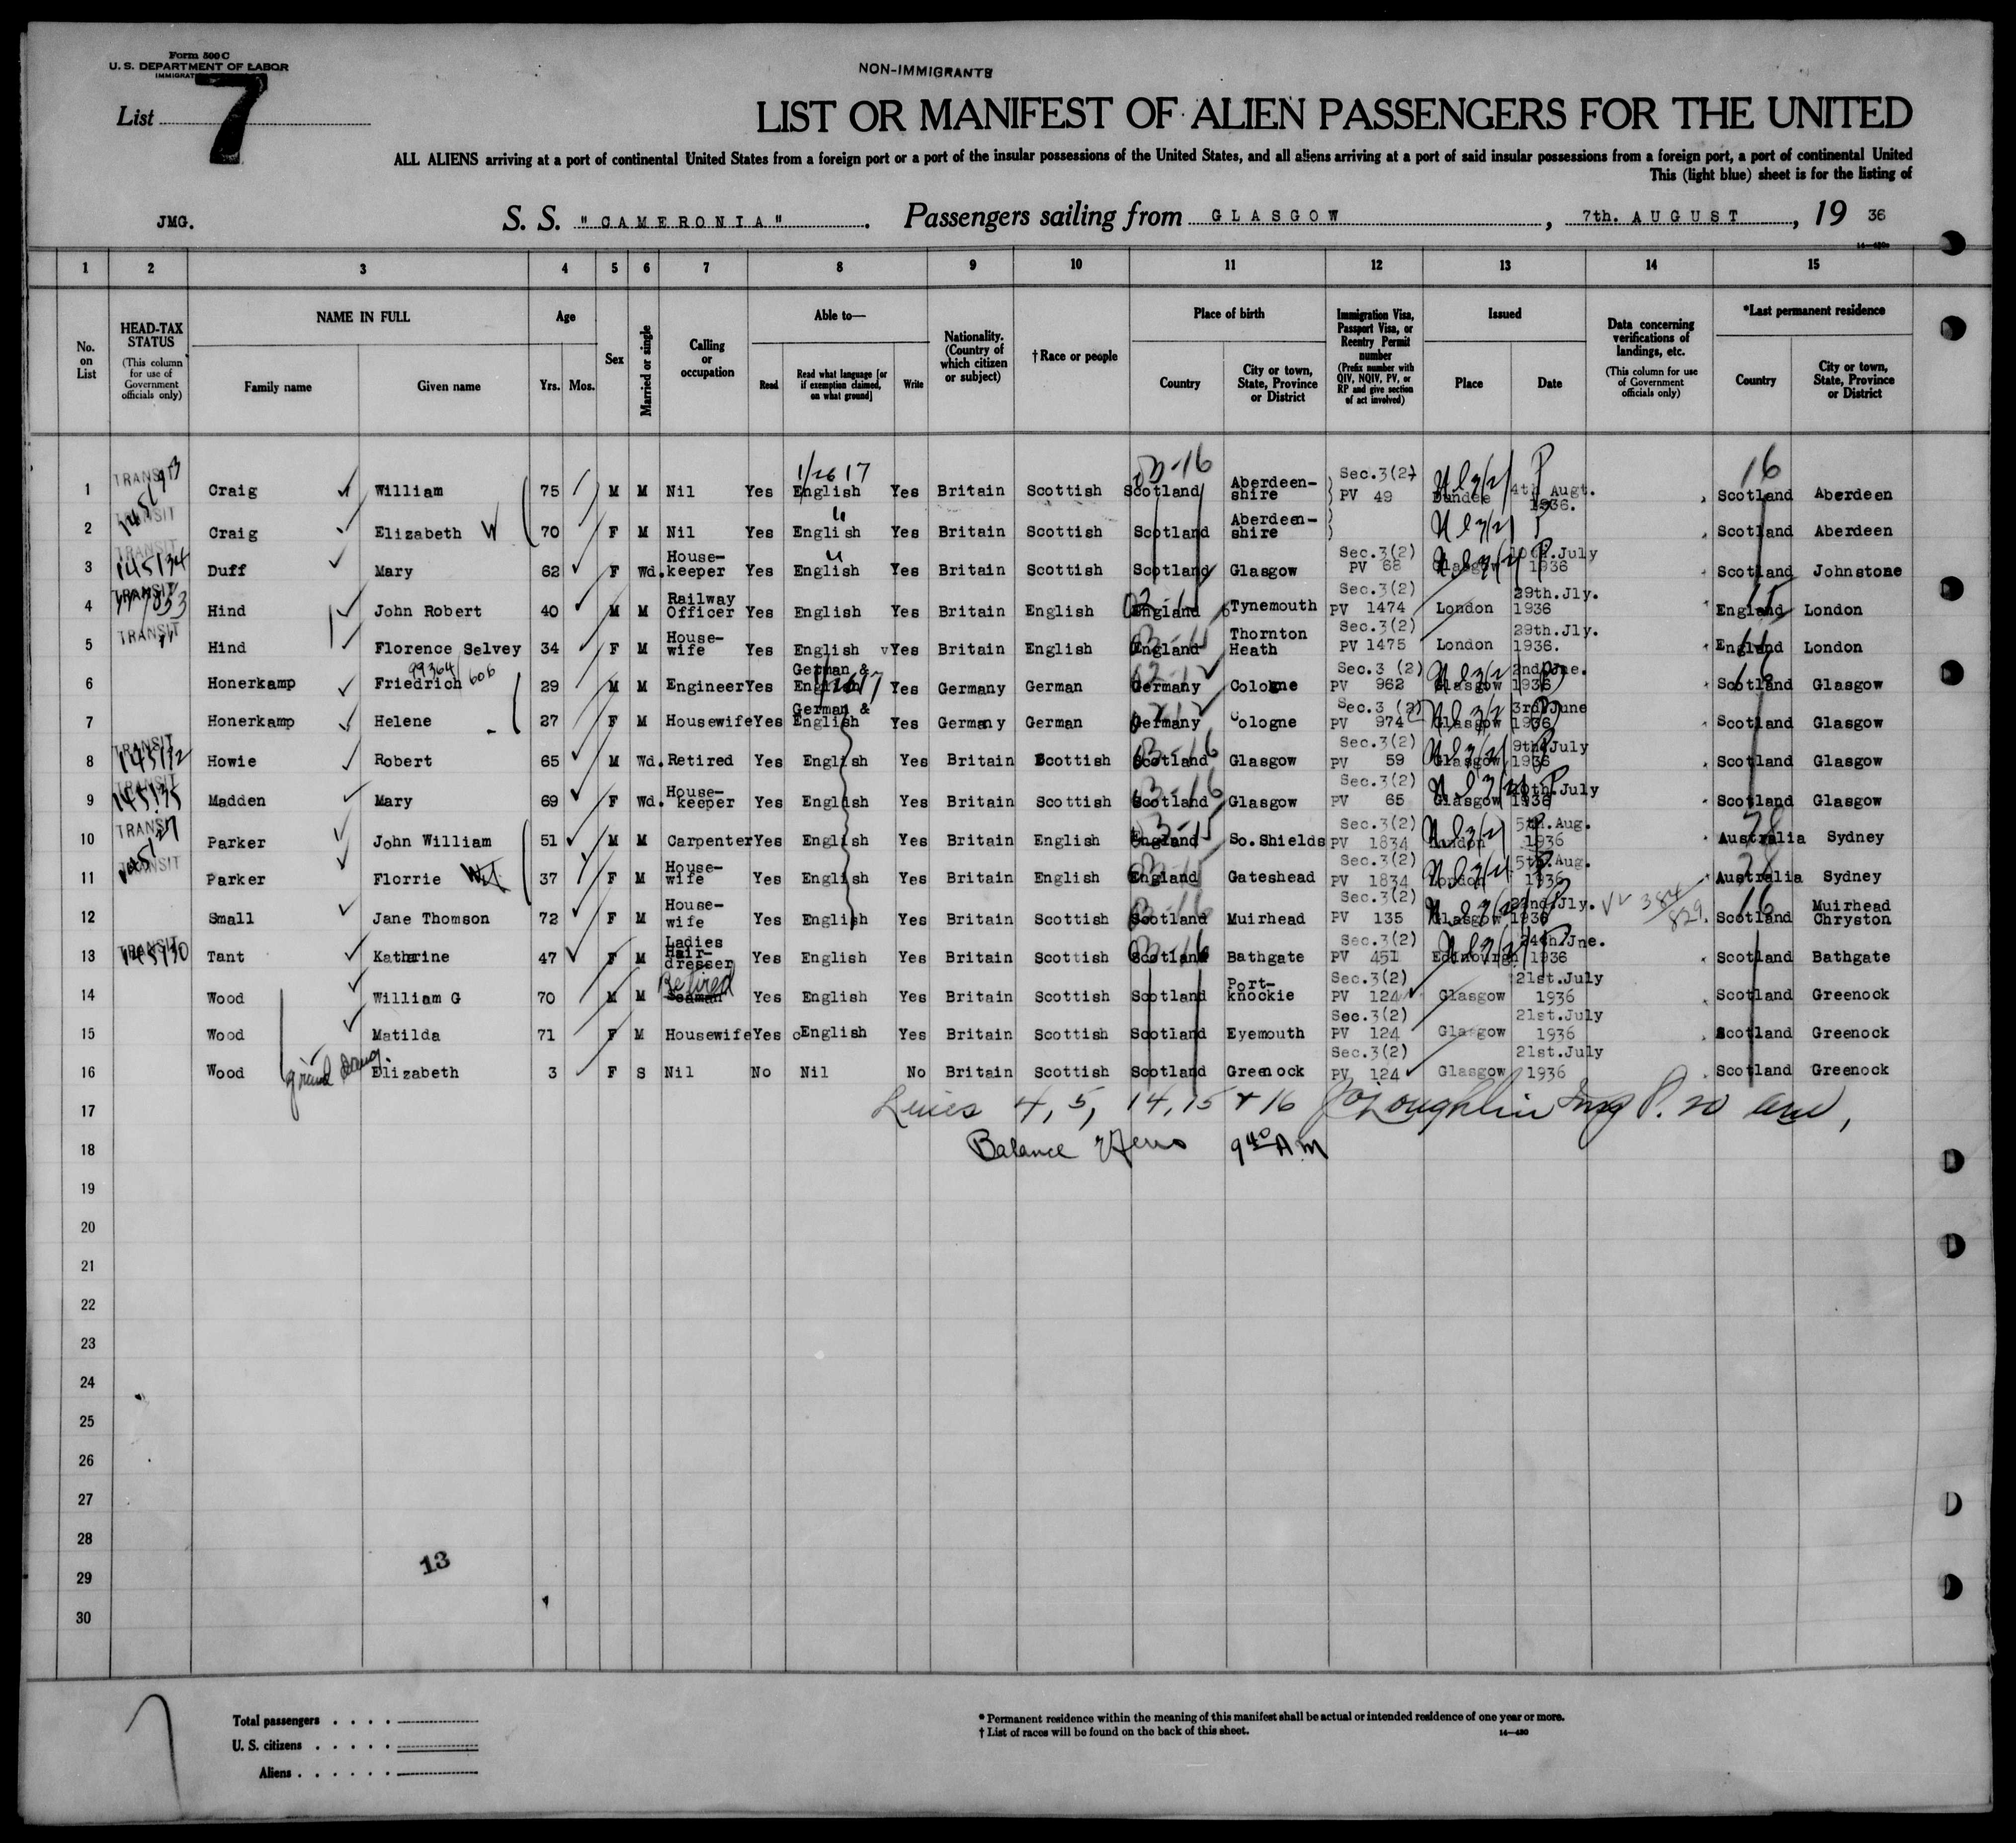 Form 500 C
U. S. DEPARTMENT OF LABOR
NON-IMMIGRANTS
List 7
LIST OR MANIFEST OF ALIEN PASSENGERS FOR THE UNITED
ALL ALIENS arriving at a port of continental United States from a foreign port or a port of the insular possessions of the United States, and all aliens arriving at a port of said insular possessions from a foreign port, a port of continental United
This (light blue) sheet is for the listing of
JMG. S. S. "CAMERONIA" Passengers sailing from GLASGOW, 7th. AUGUST, 19 36
1 2 3 4 5 6 7 8 9 10 11 12 13 14 15
No. on List
HEAD-TAX STATUS (This column for use of Government officials only)
NAME IN FULL Family name Given name
Age Yrs. Mos.
Sex
Married or single
Calling or occupation
Able to— Read Read what language [or if exemption claimed, on what ground] Write
Nationality. (Country of which citizen or subject)
† Race or people
Place of birth Country City or town, State, Province or District
Immigration Visa, Passport Visa, or Reentry Permit number (Prefix number with QIV, NQIV, PV, or RP and give section of act involved)
Issued Place Date
Data concerning verifications of landings, etc. (This column for use of Government officials only)
*Last permanent residence Country City or town, State, Province or District
1 TRANSIT Craig William 75 M M Nil Yes English Yes Britain Scottish Scotland Aberdeen-shire Sec.3(2) PV 49 Dundee 4th Augt. 1936. Scotland Aberdeen
2 TRANSIT Craig Elizabeth W 70 F M Nil Yes English Yes Britain Scottish Scotland Aberdeen-shire Scotland Aberdeen
3 TRANSIT 145134 Duff Mary 62 F Wd. House-keeper Yes English Yes Britain Scottish Scotland Glasgow Sec.3(2) PV 68 Glasgow July 1936 Scotland Johnstone
4 TRANSIT Hind John Robert 40 M M Railway Officer Yes English Yes Britain English England Tynemouth Sec.3(2) PV 1474 London 29th.Jly. 1936 England London
5 TRANSIT Hind Florence Selvey 34 F M House-wife Yes English Yes Britain English England Thornton Heath Sec.3(2) PV 1475 London 29th.Jly. 1936. England London
6 Honerkamp Friedrich 99364/606 29 M M Engineer Yes German & English Yes Germany German Germany Cologne Sec.3 (2) PV 962 Glasgow 2nd Jne. 1936 Scotland Glasgow
7 Honerkamp Helene 27 F M Housewife Yes German & English Yes Germany German Germany Cologne Sec.3 (2) PV 974 Glasgow 3rd June 1936 Scotland Glasgow
8 TRANSIT Howie Robert 65 M Wd. Retired Yes English Yes Britain Scottish Scotland Glasgow Sec.3(2) PV 59 Glasgow 9th July 1936 Scotland Glasgow
9 TRANSIT Madden Mary 69 F Wd. House-keeper Yes English Yes Britain Scottish Scotland Glasgow Sec.3(2) PV 65 Glasgow July 1936 Scotland Glasgow
10 TRANSIT Parker John William 51 M M Carpenter Yes English Yes Britain English England So.Shields Sec.3(2) PV 1834 London 5th.Aug. 1936 Australia Sydney
11 TRANSIT Parker Florrie 37 F M House-wife Yes English Yes Britain English England Gateshead Sec.3(2) PV 1834 London 5th.Aug. 1936 Australia Sydney
12 Small Jane Thomson 72 F M House-wife Yes English Yes Britain Scottish Scotland Muirhead Sec.3(2) PV 135 Glasgow 22nd Jly. 1936 384/829. Scotland Muirhead Chryston
13 TRANSIT Tant Kathrine 47 F M Ladies Hair-dresser Yes English Yes Britain Scottish Scotland Bathgate Sec.3(2) PV 451 Edinburgh 24th Jne. 1936 Scotland Bathgate
14 Wood William G 70 M M Retired Seaman Yes English Yes Britain Scottish Scotland Port-knockie Sec.3(2) PV 124 Glasgow 21st.July 1936 Scotland Greenock
15 Wood Matilda 71 F M Housewife Yes English Yes Britain Scottish Scotland Eyemouth Sec.3(2) PV 124 Glasgow 21st.July 1936 Scotland Greenock
16 Wood grand Daug. Elizabeth 3 F S Nil No Nil No Britain Scottish Scotland Greenock Sec.3(2) PV 124 Glasgow 21st.July 1936 Scotland Greenock
17 Lines 4, 5, 14, 15 + 16
18 Balance 9 40 AM
19
20
21
22
23
24
25
26
27
28
29
30
13
Total passengers
U. S. citizens
Aliens
* Permanent residence within the meaning of this manifest shall be actual or intended residence of one year or more.
† List of races will be found on the back of this sheet.
14—480